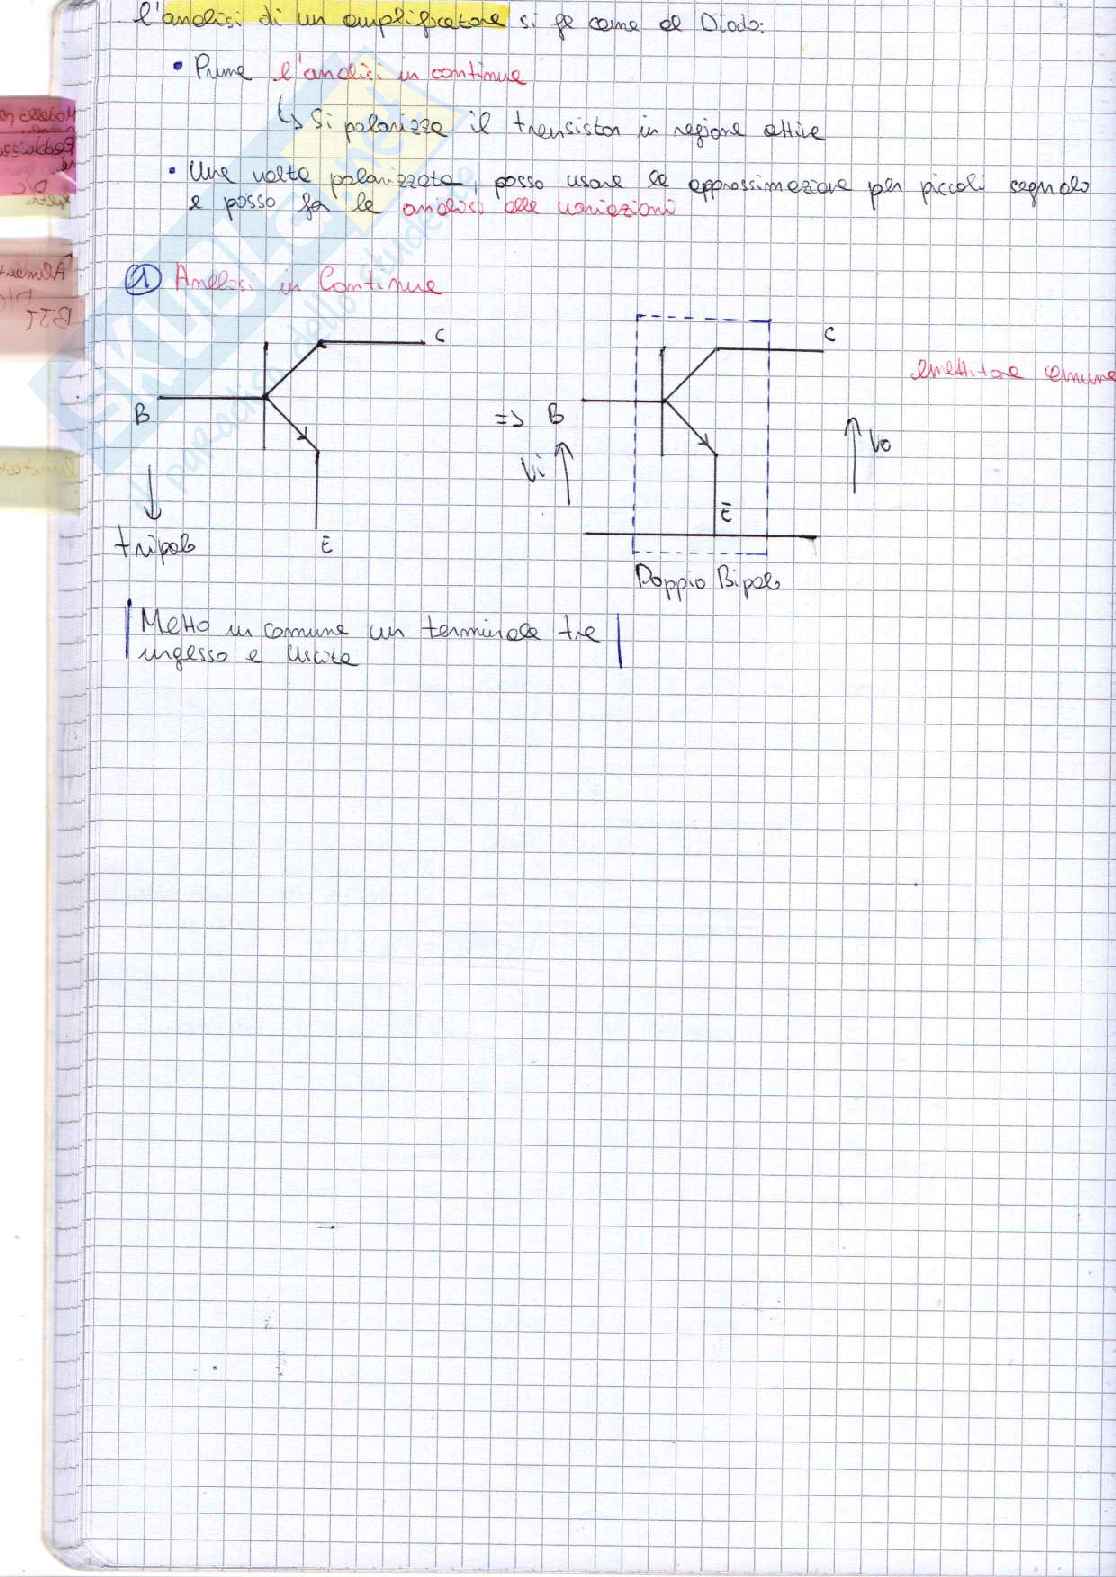 l'analisi di un amplificatore si fa come al Diodo:
• Prima l'analisi in continua
↳ Si polarizza il transistor in regione attiva
• Una volta polarizzato, posso usare la approssimazione per piccoli segnalo
e posso far la analisi alle variazioni
① Analisi in Continua
C
C
emettitore comune
B
=> B
Vi
Vo
E
tripolo
E
Doppio Bipolo
Metto in comune un terminale tra
ingesso e uscita
SKUOLA.net